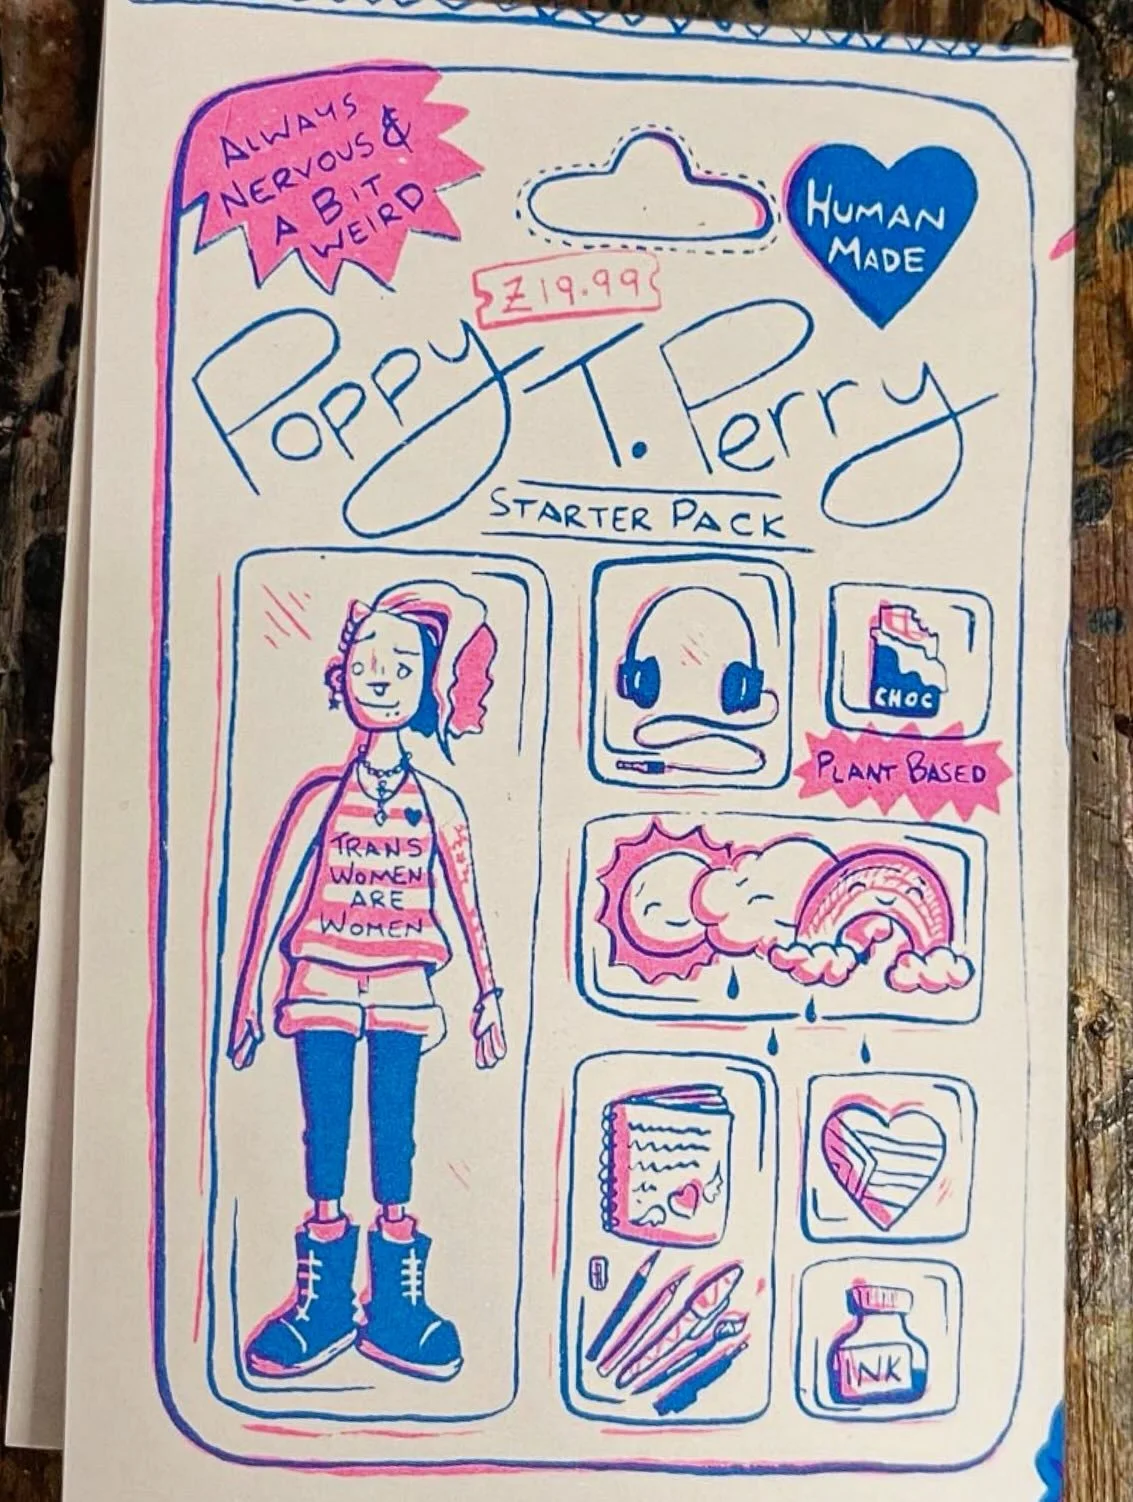 ALWAYS
NERVOUS &
A BIT
WEIRD
HUMAN
MADE
Z19.99
Poppy T. Perry
STARTER PACK
CHOC
PLANT BASED
TRANS
WOMEN
ARE
WOMEN
INK